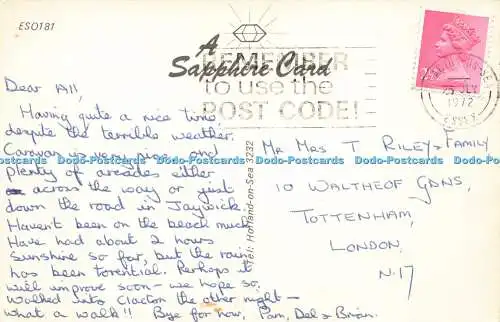 ESO181
A
Sapphire Card
REMEMBER
to use the
POST CODE!
25 JLY
1972
ESSEX
Dear All,
Having quite a nice time
despite the terrible weather.
Caravan is very nice and
plenty of arcades either
across the way or just
down the road in Jaywick.
Haven't been on the beach much
Have had about 2 hours
sunshine so far, but the rain
has been torential. Perhaps it
will improve soon - we hope so.
Walked into Clacton the other night -
what a walk!! Bye for now, Pam, Del & Brian.
Tel: Holland-on-Sea 3232
Mr Mrs T Riley & Family
10 Waltheof Gdns,
Tottenham,
London.
N.17
Dodo-Postcards Dodo-Postcards Dodo-Postcards Dodo-Postcards Dodo-Postcards Dodo-Postcards
Dodo-Postcards Dodo-Postcards Dodo-Postcards Dodo-Postcards Dodo-Postcards Dodo-Postcards